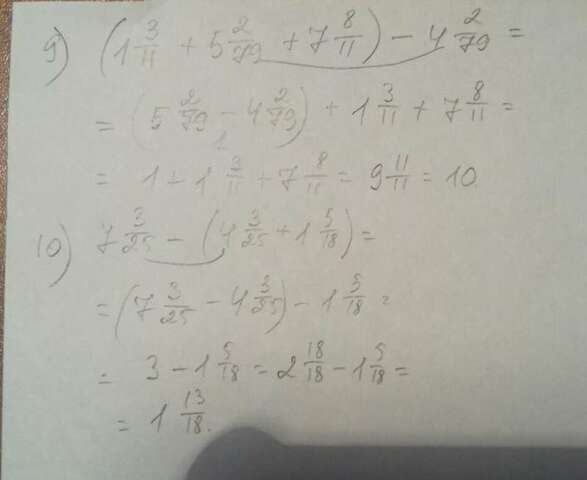 9) (1 3/11 + 5 2/79 + 7 8/11) - 4 2/79 =
= (5 2/79 - 4 2/79) + 1 3/11 + 7 8/11 =
= 1 + 1 3/11 + 7 8/11 = 9 11/11 = 10
10) 7 3/25 - (4 3/25 + 1 5/18) =
= (7 3/25 - 4 3/25) - 1 5/18 =
= 3 - 1 5/18 = 2 18/18 - 1 5/18 =
= 1 13/18.